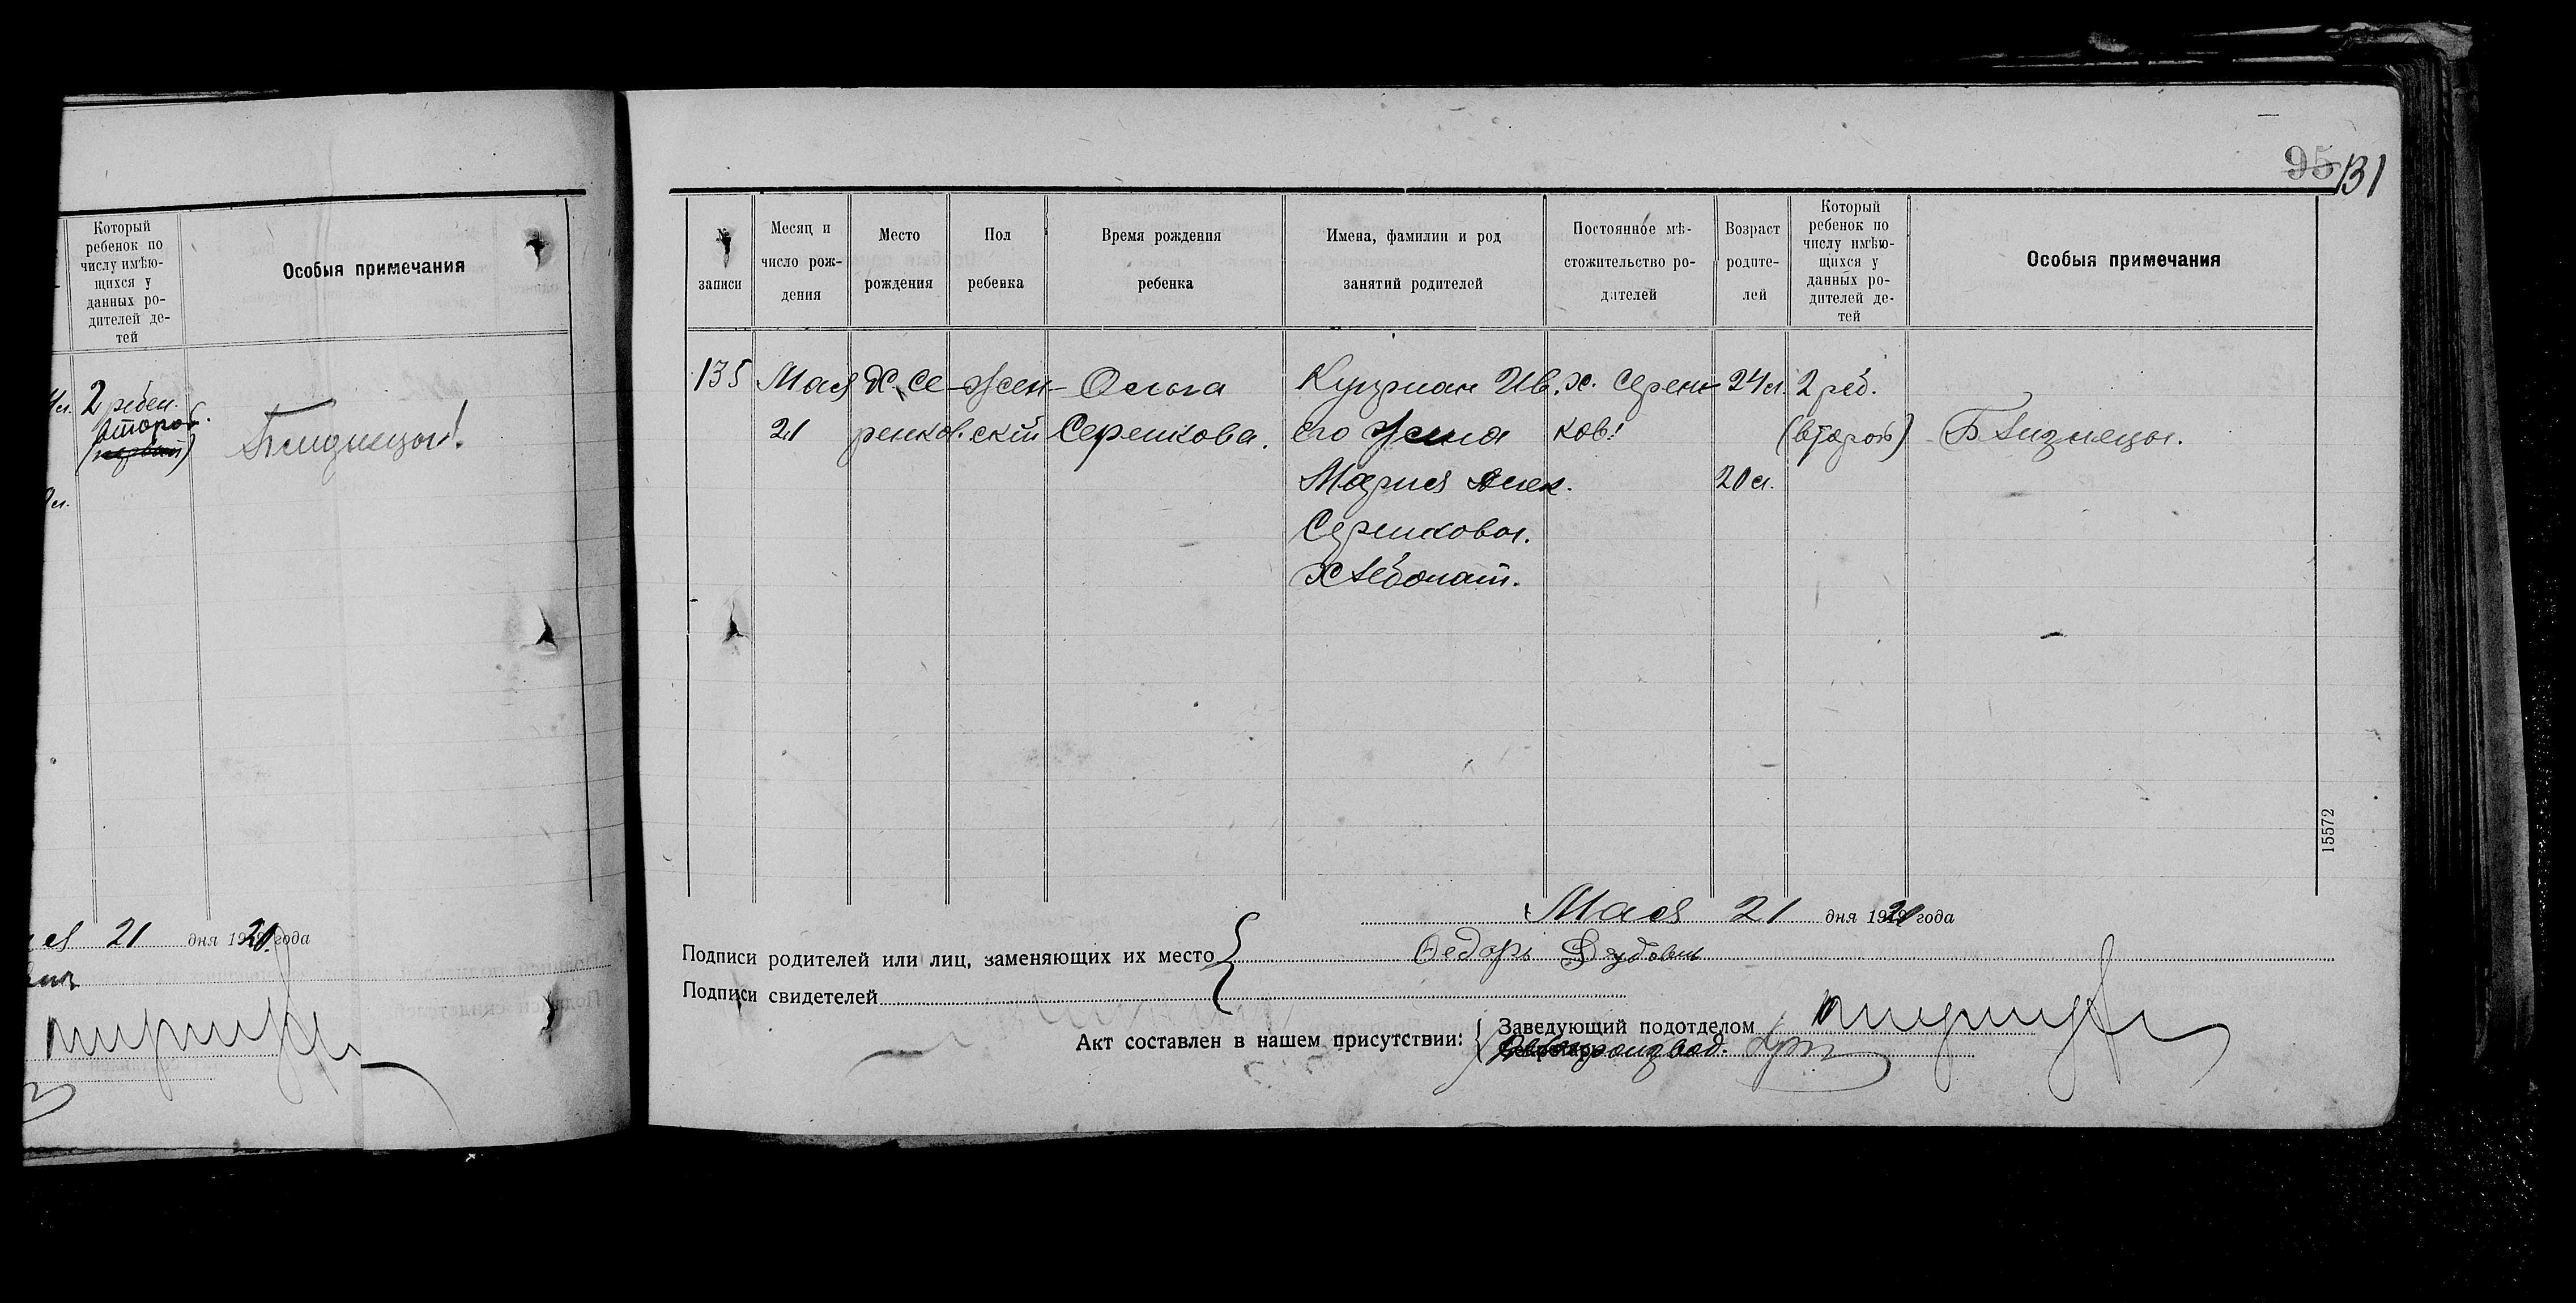 95 131
Который
ребенок по
числу имѣю-
щихся у
данных ро-
дителей де-
тей
Особыя примечания
2 ребен.
второй
(первый)
Близнецы!
21 дня 1920 года
№
записи
Месяц и
число рож-
дения
Место
рождения
Пол
ребенка
Время рождения
ребенка
Имена, фамилии и род
занятий родителей
Постоянное мѣ-
стожительство ро-
дителей
Возраст
родите-
лей
Который
ребенок по
числу имѣю-
щихся у
данных ро-
дителей де-
тей
Особыя примечания
135 Мая Х. Се- Жен- Ольга Куприан Ив. х. Серен- 24 л. 2 реб.
21 ренков. скій Серенкова. его жена ков. (второй) Близнецы.
Мария Алек. 20 л.
Серенковы.
Хлебопаш.
15572
Мая 21 дня 19 года
Подписи родителей или лиц, заменяющих их место Федоръ
Подписи свидетелей
Акт составлен в нашем присутствии:
Заведующий подотделом
Делопроизвод.